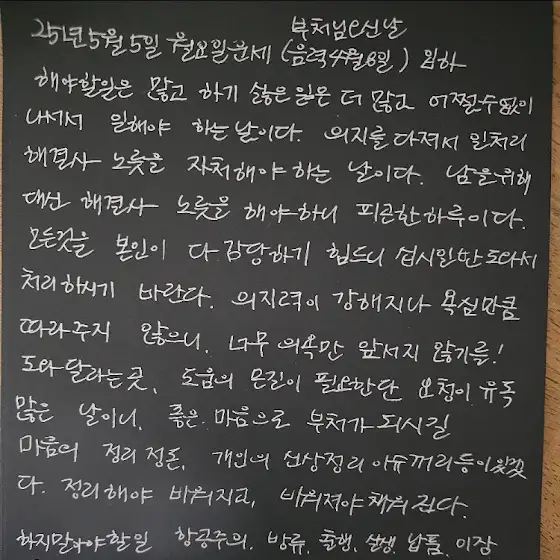 부처님오신날
25년5월5일 월요일운세 (음력4월8일) 임하
해야할일은 많고 하기 싫은 일은 더 많고 어쩔수없이
나서서 일해야 하는날이다. 의지를 다져서 일처리
해결사 노릇을 자처해야 하는 날이다. 남을위해
대신 해결사 노릇을 해야하니 피곤한하루이다.
모든것을 본인이 다 감당하기 힘드니 십시일반 도와서
처리하시기 바란다. 의지력이 강해지나 욕심만큼
따라주지 않으니, 너무 의욕만 앞서지 않기를!
도와달라는곳, 도움의 손길이 필요한단 요청이 유독
많은 날이니, 좋은 마음으로 부처가 되시길
마음의 정리정돈, 개인의 신상정리 등이있겠
다. 정리해야 비워지고, 비워져야채워진다.
하지말아야할일 항공주의, 방류, 출행, 살생, 납품, 이장